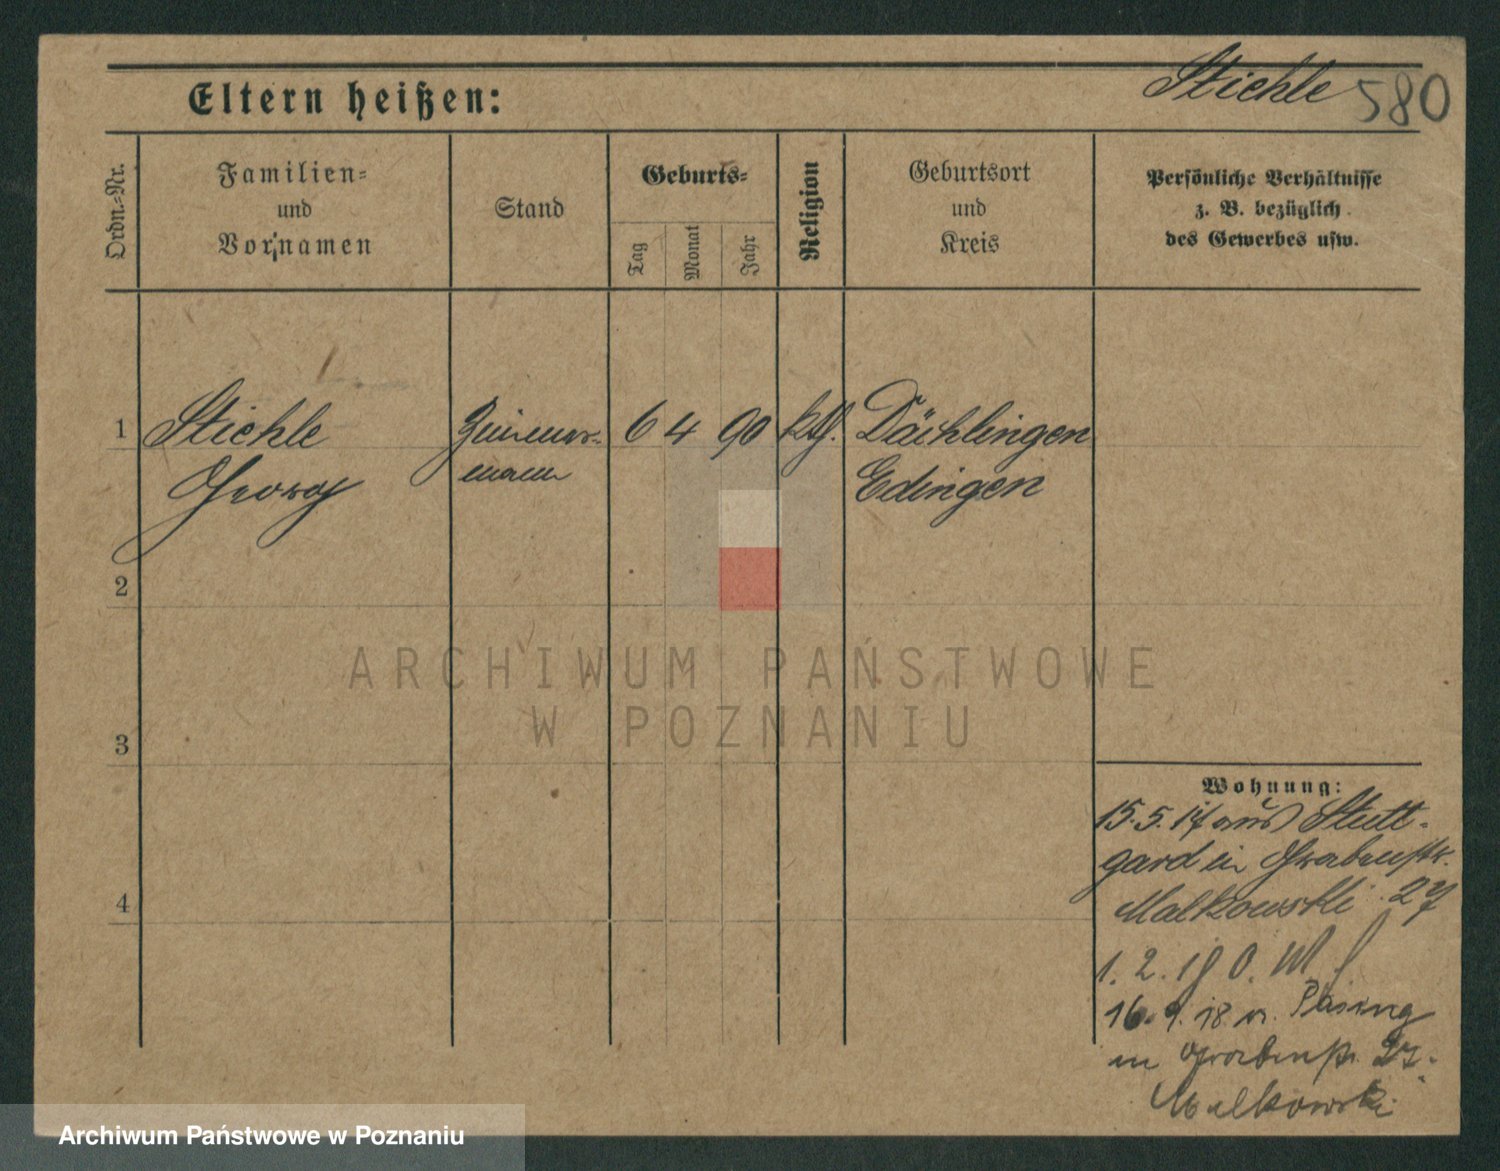 Stiehle 580
Eltern heißen:
Ordn.-Nr.
Familien-
und
Vornamen
Stand
Geburts-
Tag
Monat
Jahr
Religion
Geburtsort
und
Kreis
Persönliche Verhältnisse
z. B. bezüglich
des Gewerbes usw.
1 Stiehle Zimmer- 6 4 90 kth. Dächlingen
Georg mann Edingen
2
3
4
Wohnung:
15.5.17 aus Stutt-
gard in Grabenstr.
Malkowski 27
1. 2. 18 O.
16. 9. 18 v. Pasing
in Grabenstr. 27.
Malkowski
ARCHIWUM PAŃSTWOWE
W POZNANIU
Archiwum Państwowe w Poznaniu